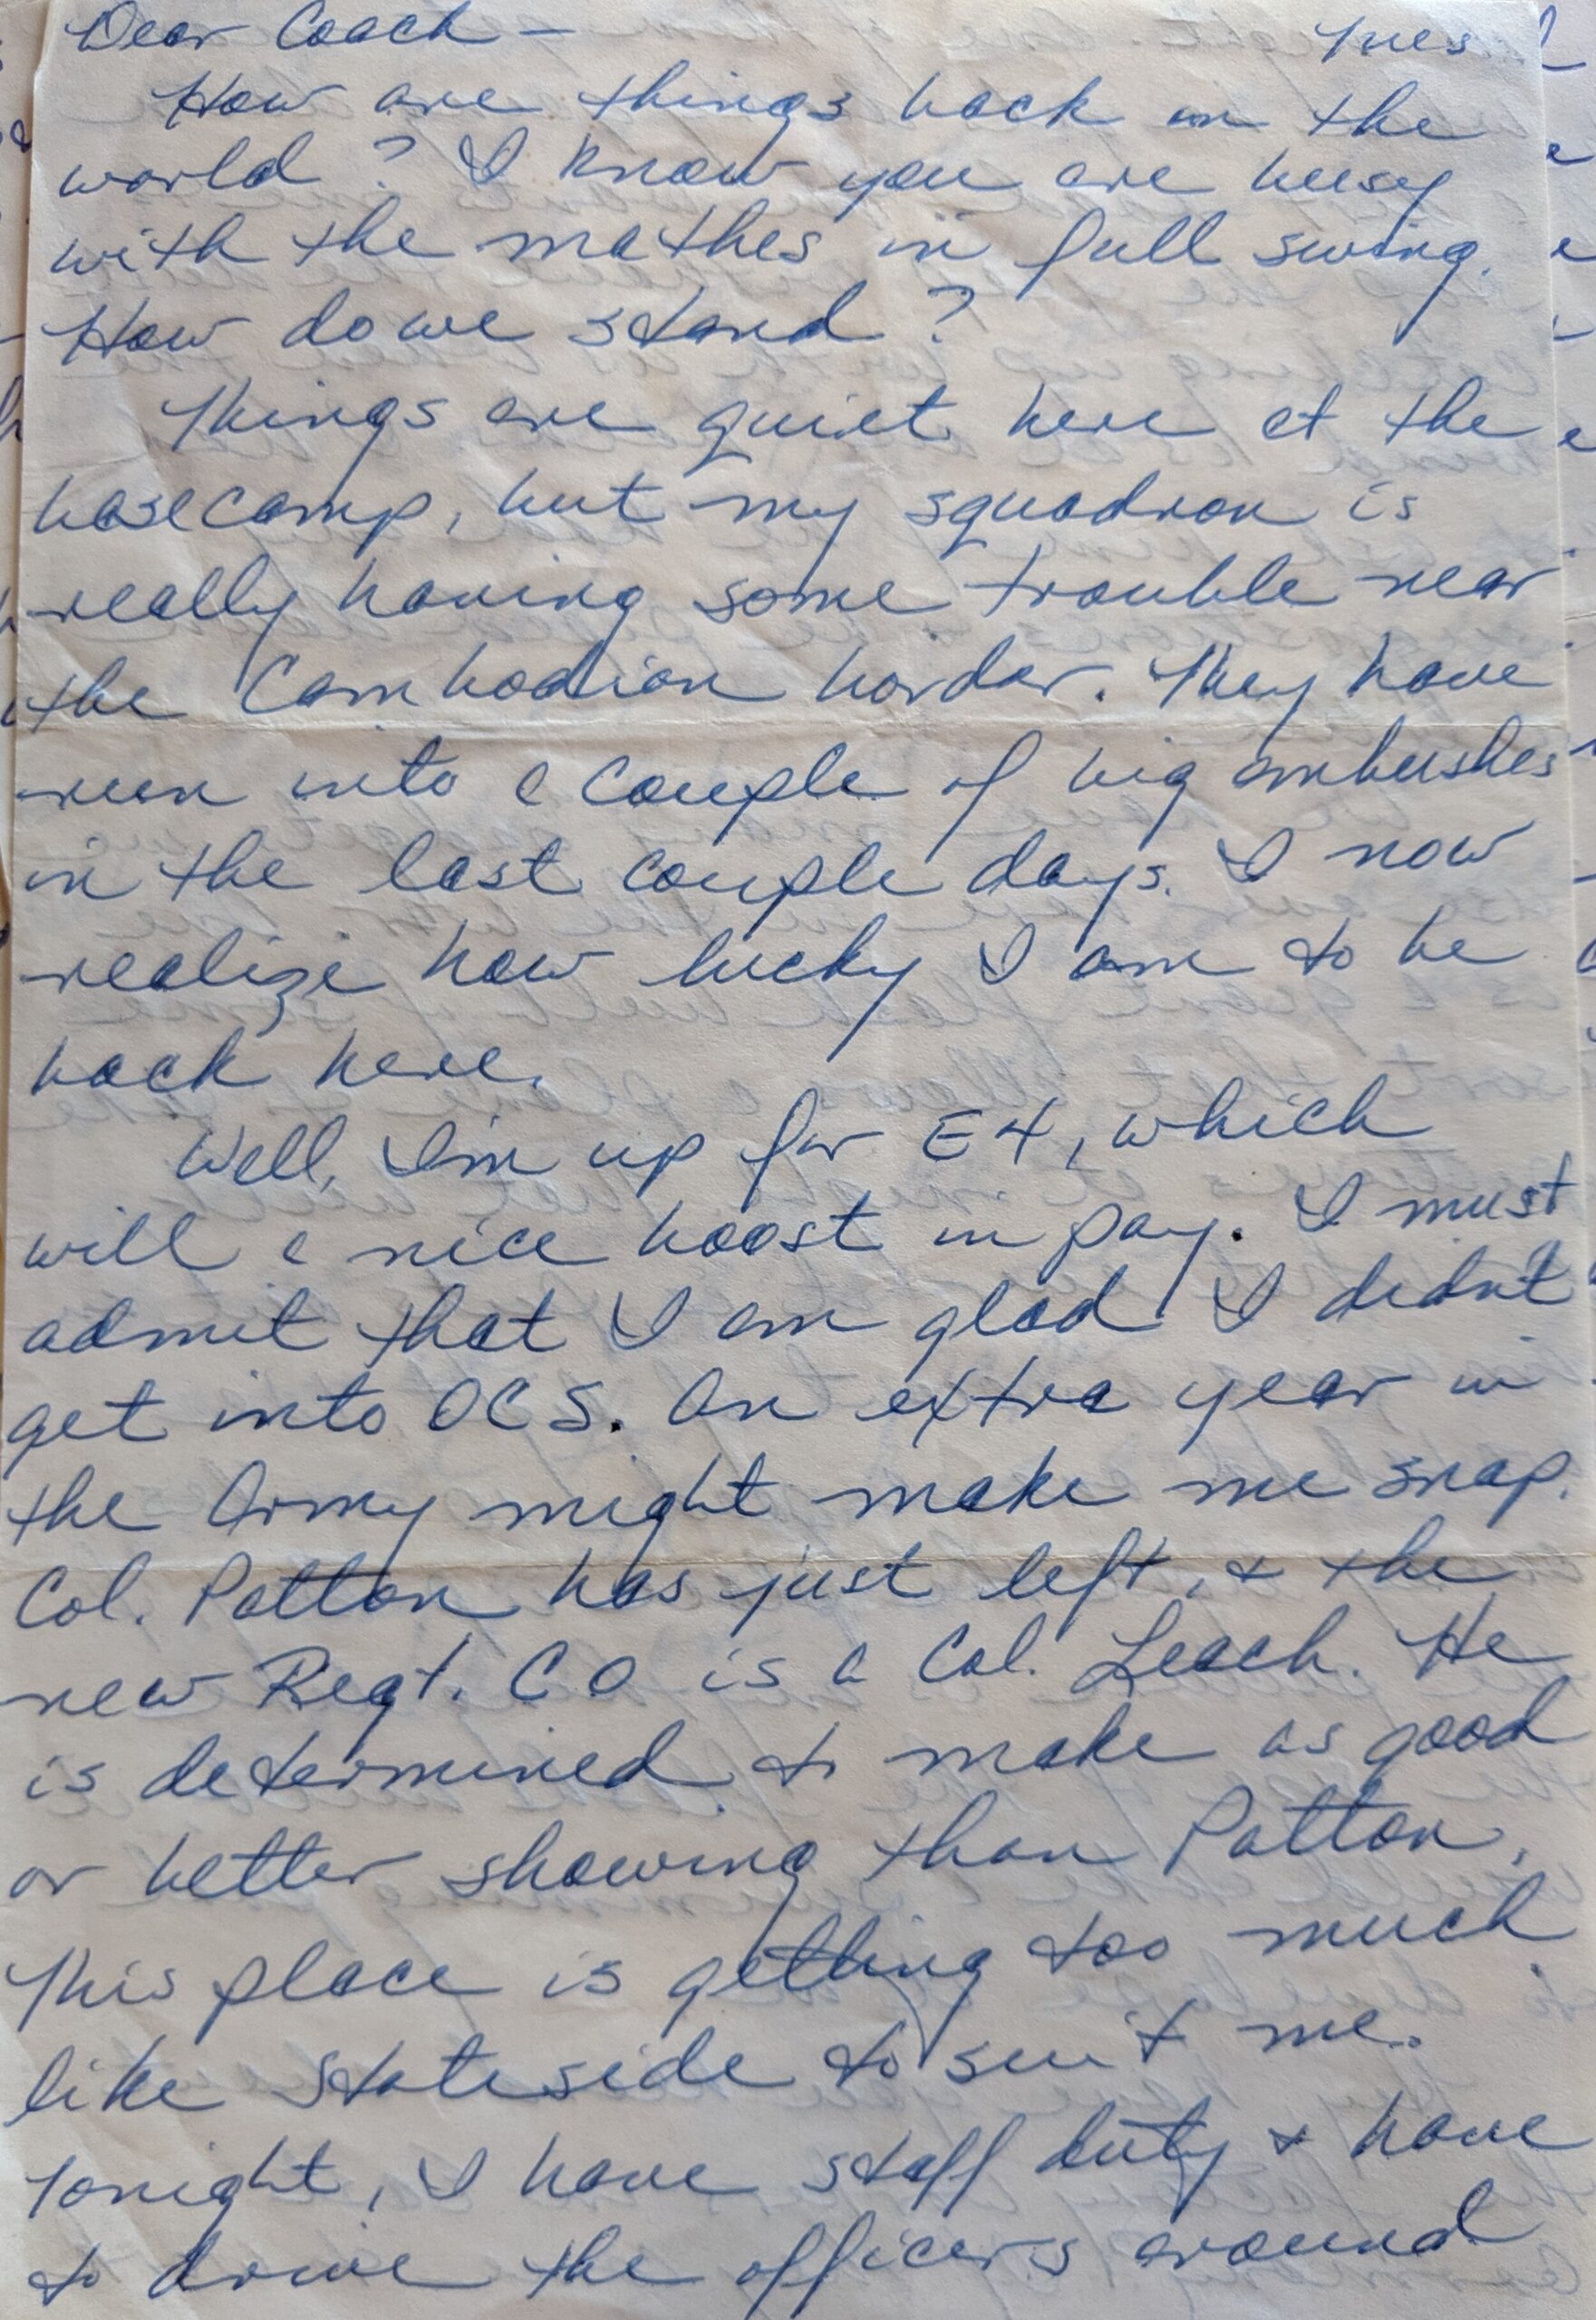 Dear Coach – Tues
How are things back in the
world? I know you are busy
with the mathes in full swing.
How do we stand?
Things are quiet here at the
basecamp, but my squadron is
really having some trouble near
the Cambodian border. They have
run into a couple of big ambushes
in the last couple days. I now
realize how lucky I am to be
back here.
Well, I'm up for E4, which
will a nice boost in pay. I must
admit that I am glad I didn't
get into OCS. An extra year in
the Army might make me snap.
Col. Patton has just left, & the
new Regt. CO is a Col. Leach. He
is determined to make as good
or better showing than Patton.
This place is getting too much
like Stateside to suit me.
Tonight, I have staff duty & have
to drive the officers around